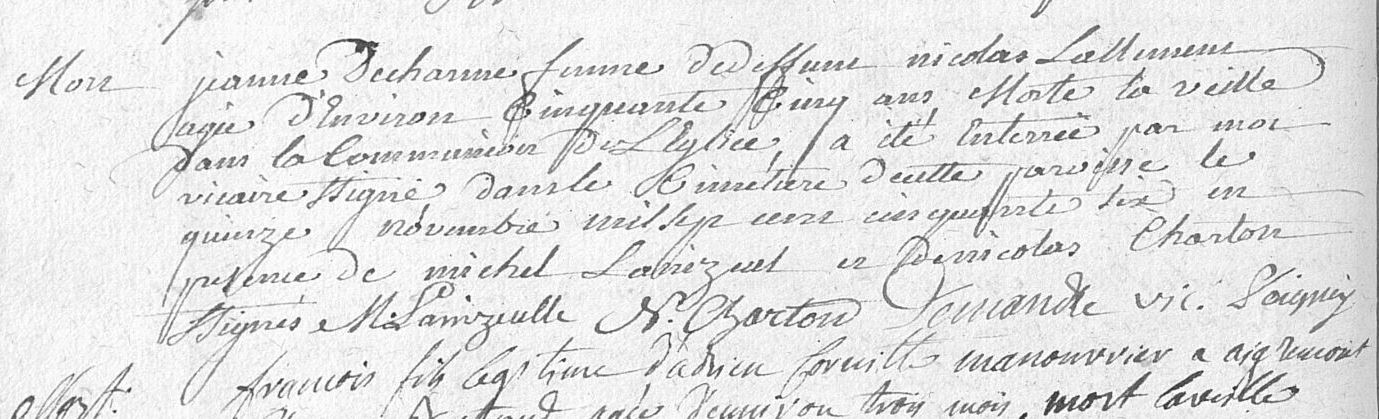 Mort jeanne Decharme femme dedeffunt nicolas Lallement
agée d'Environ Cinquante Cinq ans, Morte la veille
dans la Communion De L'Eglise, a été Enterrée par moi
vicaire ssigné dans le Cimetiere decette paroisse le
quinze novembre mil sept cent cinquante six en
presence de michel Lainzeul et de nicolas Charton
ssignés M. Lainzeulle N. Charton Demandre vic.
Mort françois fils legitime d'adrien manouvrier a aigremont
agé d'environ trois mois, mort laveille